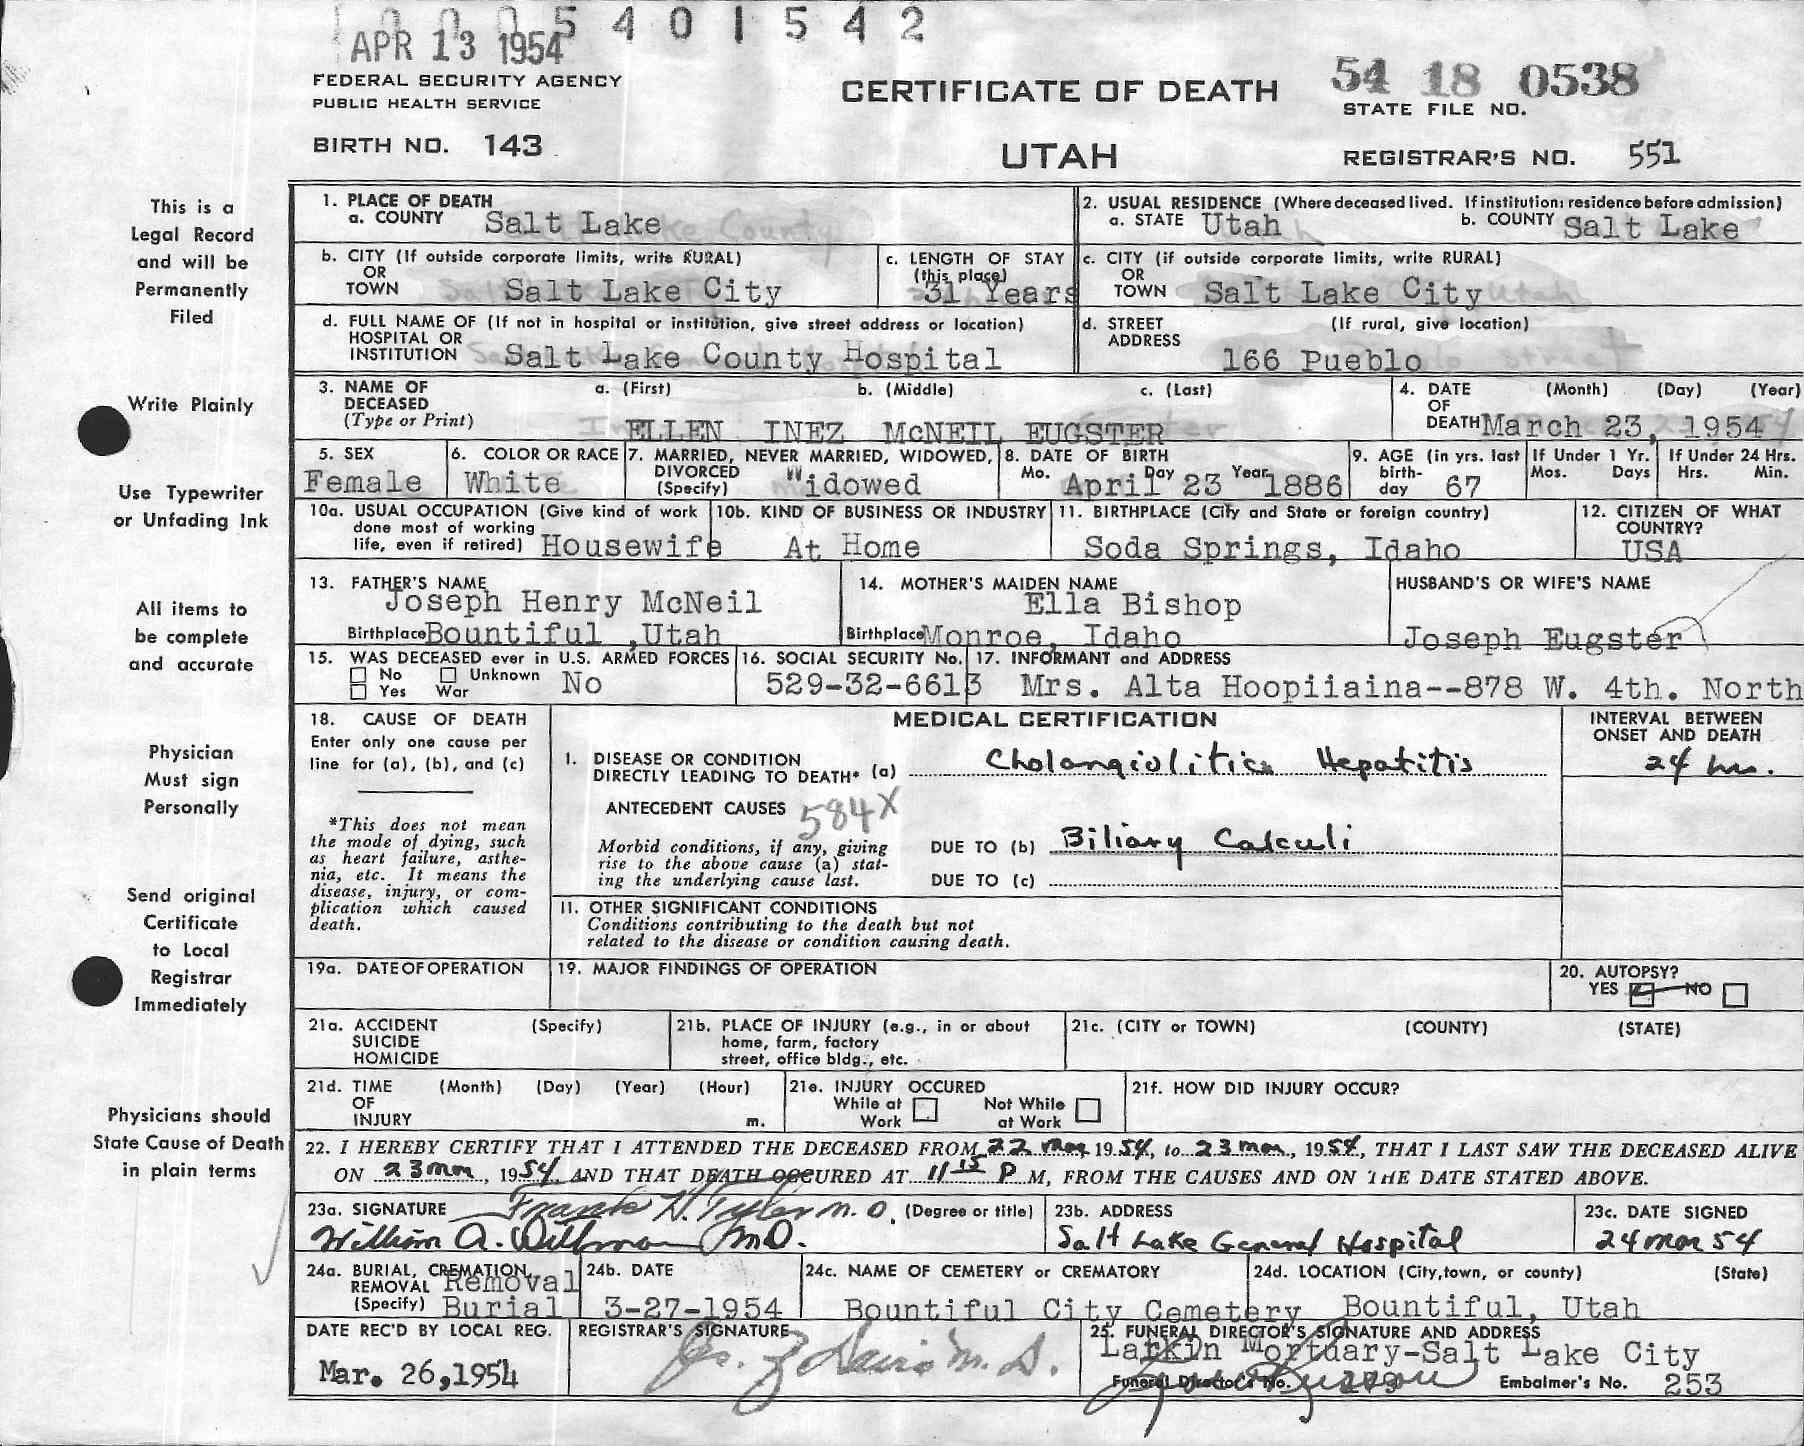 5401542
APR 13 1954
FEDERAL SECURITY AGENCY
PUBLIC HEALTH SERVICE
BIRTH NO. 143
CERTIFICATE OF DEATH
UTAH
54 18 0538
STATE FILE NO.
REGISTRAR'S NO. 551
This is a
Legal Record
and will be
Permanently
Filed
Write Plainly
Use Typewriter
or Unfading Ink
All items to
be complete
and accurate
Physician
Must sign
Personally
Send original
Certificate
to Local
Registrar
Immediately
Physicians should
State Cause of Death
in plain terms
1. PLACE OF DEATH
a. COUNTY Salt Lake
2. USUAL RESIDENCE (Where deceased lived. If institution: residence before admission)
a. STATE Utah b. COUNTY Salt Lake
b. CITY (If outside corporate limits, write RURAL)
OR
TOWN Salt Lake City
c. LENGTH OF STAY
(this place)
31 Years
c. CITY (if outside corporate limits, write RURAL)
OR
TOWN Salt Lake City
d. FULL NAME OF (If not in hospital or institution, give street address or location)
HOSPITAL OR
INSTITUTION Salt Lake County Hospital
d. STREET (If rural, give location)
ADDRESS
166 Pueblo
3. NAME OF a. (First) b. (Middle) c. (Last)
DECEASED
(Type or Print) ELLEN INEZ McNEIL EUGSTER
4. DATE (Month) (Day) (Year)
OF
DEATH March 23, 1954
5. SEX
Female
6. COLOR OR RACE
White
7. MARRIED, NEVER MARRIED, WIDOWED,
DIVORCED
(Specify) Widowed
8. DATE OF BIRTH
Mo. April Day 23 Year 1886
9. AGE (in yrs. last
birth-
day 67
If Under 1 Yr.
Mos. Days
If Under 24 Hrs.
Hrs. Min.
10a. USUAL OCCUPATION (Give kind of work
done most of working
life, even if retired) Housewife
10b. KIND OF BUSINESS OR INDUSTRY
At Home
11. BIRTHPLACE (City and State or foreign country)
Soda Springs, Idaho
12. CITIZEN OF WHAT
COUNTRY?
USA
13. FATHER'S NAME
Joseph Henry McNeil
Birthplace Bountiful ,Utah
14. MOTHER'S MAIDEN NAME
Ella Bishop
Birthplace Monroe, Idaho
HUSBAND'S OR WIFE'S NAME
Joseph Eugster
15. WAS DECEASED ever in U.S. ARMED FORCES
No Unknown No
Yes War
16. SOCIAL SECURITY No.
529-32-6613
17. INFORMANT and ADDRESS
Mrs. Alta Hoopiiaina--878 W. 4th. North
18. CAUSE OF DEATH
Enter only one cause per
line for (a), (b), and (c)
*This does not mean
the mode of dying, such
as heart failure, asthe-
nia, etc. It means the
disease, injury, or com-
plication which caused
death.
MEDICAL CERTIFICATION
INTERVAL BETWEEN
ONSET AND DEATH
1. DISEASE OR CONDITION
DIRECTLY LEADING TO DEATH* (a) Cholangiolitic Hepatitis 24 hrs.
ANTECEDENT CAUSES 584X
Morbid conditions, if any, giving
rise to the above cause (a) stat-
ing the underlying cause last.
DUE TO (b) Biliary Calculi
DUE TO (c)
11. OTHER SIGNIFICANT CONDITIONS
Conditions contributing to the death but not
related to the disease or condition causing death.
19a. DATE OF OPERATION
19. MAJOR FINDINGS OF OPERATION
20. AUTOPSY?
YES NO
21a. ACCIDENT (Specify)
SUICIDE
HOMICIDE
21b. PLACE OF INJURY (e.g., in or about
home, farm, factory
street, office bldg., etc.
21c. (CITY or TOWN) (COUNTY) (STATE)
21d. TIME (Month) (Day) (Year) (Hour)
OF
INJURY m.
21e. INJURY OCCURED
While at Not While
Work at Work
21f. HOW DID INJURY OCCUR?
22. I HEREBY CERTIFY THAT I ATTENDED THE DECEASED FROM 22 Mar 1954, to 23 mar, 1954, THAT I LAST SAW THE DECEASED ALIVE
ON 23 mar, 1954, AND THAT DEATH OCCURED AT 11 15 P M, FROM THE CAUSES AND ON THE DATE STATED ABOVE.
23a. SIGNATURE Frank H. Tyler M.D. (Degree or title)
William A. MD.
23b. ADDRESS
Salt Lake General Hospital
23c. DATE SIGNED
24 mar 54
24a. BURIAL, CREMATION,
REMOVAL Removal
(Specify) Burial
24b. DATE
3-27-1954
24c. NAME OF CEMETERY or CREMATORY
Bountiful City Cemetery
24d. LOCATION (City, town, or county) (State)
Bountiful, Utah
DATE REC'D BY LOCAL REG.
Mar. 26,1954
REGISTRAR'S SIGNATURE
25. FUNERAL DIRECTOR'S SIGNATURE AND ADDRESS
Larkin Mortuary-Salt Lake City
Funeral Director's No. Embalmer's No. 253